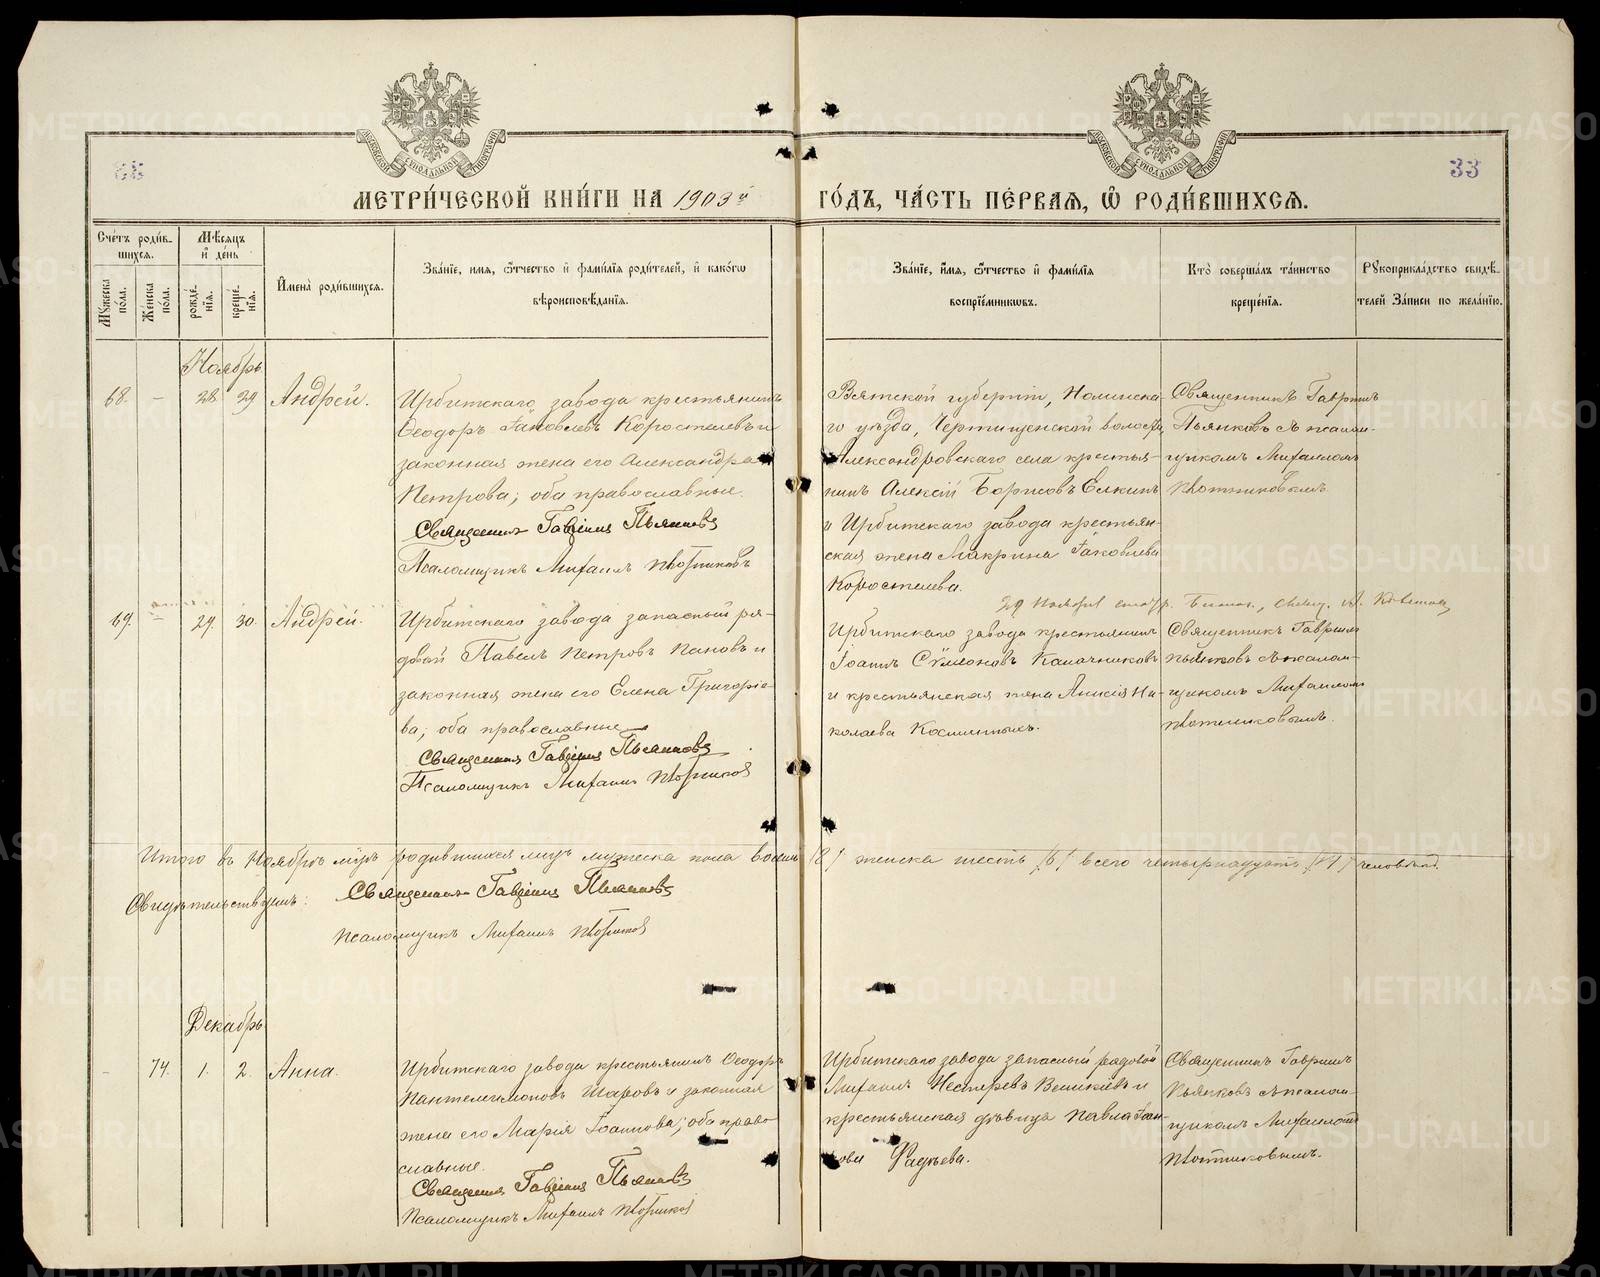 МЕТРИ́ЧЕСКОЙ КНИ́ГИ НА 1903й
ГО́ДЪ, ЧА́СТЬ ПЕ́РВАѦ, Ѽ РОДИ́ВШИХСѦ.
33
Сче́тъ роди́в-
шихсѧ.
Мѣ́сѧцъ
и҆ де́нь
Мꙋ́жеска
по́ла.
Же́нска
по́ла.
рожде́-
нїѧ.
креще́-
нїѧ.
И҆мена̀ роди́вшихсѧ.
Зва́нїе, и҆́мѧ, ѻ҆́тчество и҆ фами́лїѧ роди́телей, и҆ како́гѡ
вѣроисповѣ́данїѧ.
Зва́нїе, и҆́мѧ, ѻ҆́тчество и҆ фами́лїѧ
воспрїе́мникѡвъ.
Кто̀ соверша́лъ та́инство
креще́нїѧ.
Рꙋкоприкла́дство свидѣ́-
телей за́писи по жела́нїю.
Ноябрь
68. - 28 29 Андрей.
Ирбитскаго завода крестьянинъ
Ѳеодоръ Іаковлевъ Коростелевъ и
законная жена его Александра
Петрова; оба православные.
Священникъ Гавріилъ Пьянковъ
Псаломщикъ Михаилъ Плотниковъ
Вятской губерніи, Нолинска-
го уѣзда, волости,
Александровскаго села крестья-
нинъ Алексій Борисовъ Елкинъ
и Ирбитскаго завода крестьян-
ская жена Макрина Іаковлева
Коростелева.
Священникъ Гавріилъ
Пьянковъ съ псалом-
щикомъ Михаиломъ
Плотниковымъ.
69. - 29. 30. Андрей.
Ирбитскаго завода запасный ря-
довой Павелъ Петровъ Пановъ и
законная жена его Елена Григорье-
ва; оба православные
Священникъ Гавріилъ Пьянковъ
Псаломщикъ Михаилъ Плотниковъ
29 Ноября
Ирбитскаго завода крестьянинъ
Іоаннъ Сѵмеоновъ Калачниковъ
и крестьянская жена Анисія Ни-
колаева
Священникъ Гавріилъ
Пьянковъ съ псалом-
щикомъ Михаиломъ
Плотниковымъ.
Итого въ Ноябрѣ мцѣ родившихся лицъ мужеска пола восемь /8/ женска шесть /6/ всего четырнадцать /14/ человѣкъ.
Свидѣтельствуемъ: Священникъ Гавріилъ Пьянковъ
Псаломщикъ Михаилъ Плотниковъ
Декабрь
- 74. 1. 2. Анна.
Ирбитскаго завода крестьянинъ Ѳеодоръ
Пантелеимоновъ Шаровъ и законная
жена его Марія Іоаннова; оба право-
славные.
Священникъ Гавріилъ Пьянковъ
Псаломщикъ Михаилъ Плотниковъ
Ирбитскаго завода запасный рядовой
Михаилъ Нестеровъ и
крестьянская дѣвица Павла Іоан-
нова Фадѣева.
Священникъ Гавріилъ
Пьянковъ съ псалом-
щикомъ Михаиломъ
Плотниковымъ.
METRIKI.GASO-URAL.RU